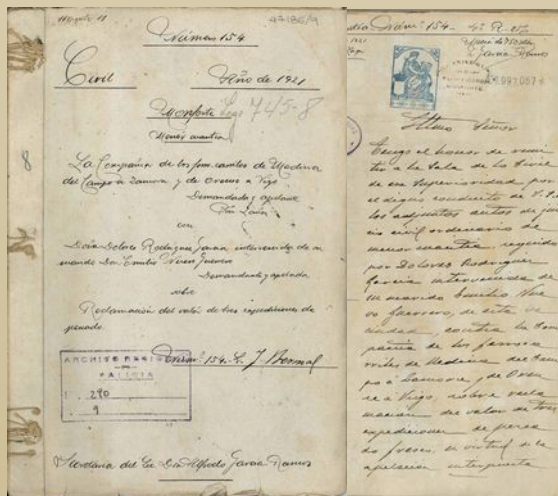 47186/9
Número 154
Civil
Año de 1921
Monforte Lugo 745-8
Menor cuantía
8
La Compañía de los ferrocarriles de Medina
del Campo a Zamora y de Orense a Vigo
Demandada y apelante
con
Doña Dolores Rodríguez García intervenida de su
marido Don Emilio
Demandante y apelada
sobre
Reclamación del valor de tres expediciones de
pescado
Núm. 154. J. Bermal
ARCHIVO REGIONAL
GALICIA
290
9
Secretaría del Ldo. Don Alfredo García Ramos
Núm. 154 -
1921
García Ramos
Iltmo Señor
Tengo el honor de remi
tir a la Sala de lo Civil
de esa Superioridad por
el digno conducto de V. I.
los adjuntos autos de jui
cio civil ordinario de
menor cuantía, seguido
por Dolores Rodríguez
García intervenida de
su marido Emilio
Guerrero, de esta
ciudad, contra la Com
pañía de los ferroca
rriles de Medina del Cam
po a Zamora y de Oren
se a Vigo, sobre recla
mación del valor de tres
expediciones de pesca
do fresco, en virtud de la
apelación interpuesta